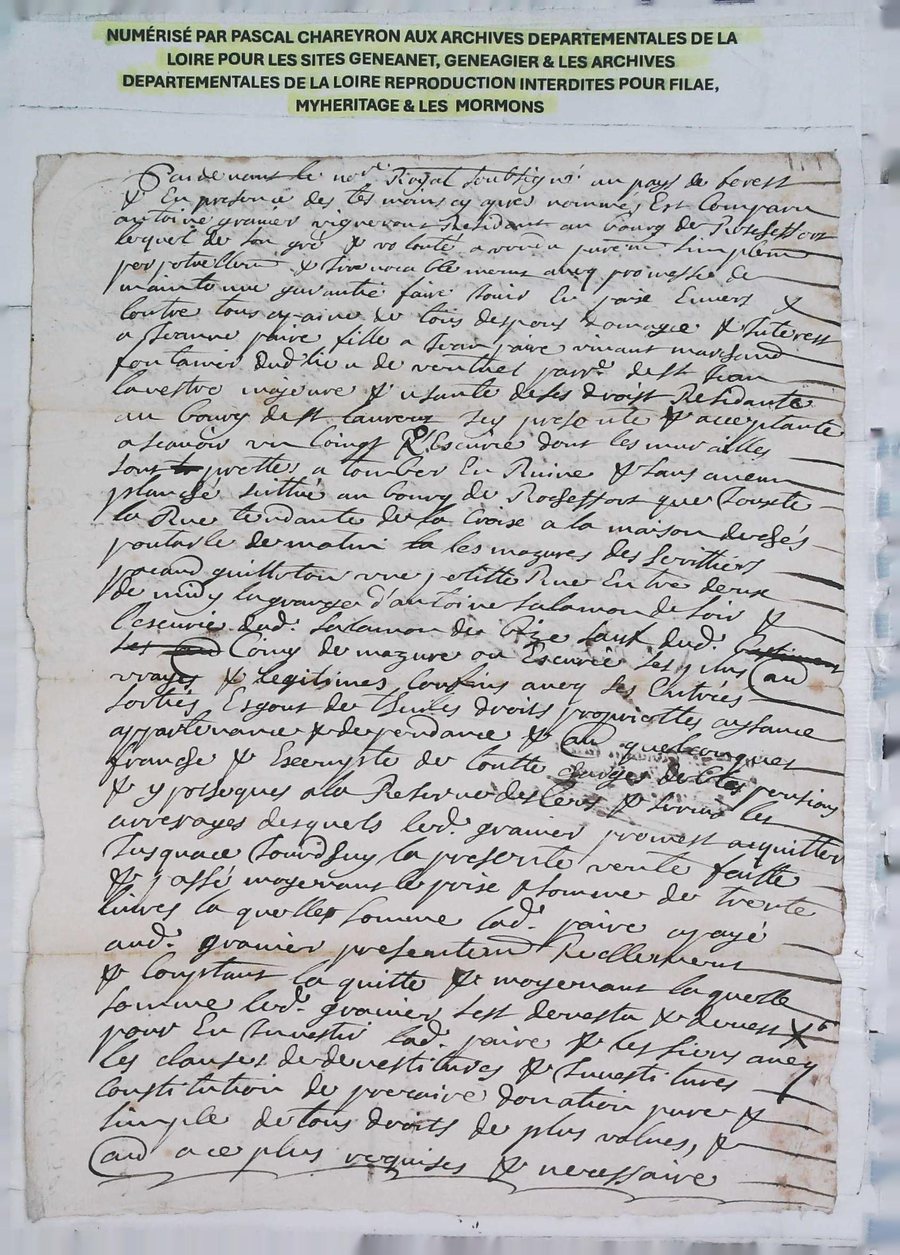 NUMÉRISÉ PAR PASCAL CHAREYRON AUX ARCHIVES DEPARTEMENTALES DE LA
LOIRE POUR LES SITES GENEANET, GENEAGIER & LES ARCHIVES
DEPARTEMENTALES DE LA LOIRE REPRODUCTION INTERDITES POUR FILAE,
MYHERITAGE & LES MORMONS
Pardevant le no.re Royal soubsigné au pays de forest
& En presence des tesmoins cy apres nommes Est Comparu
antoine granier vigneron Residant au bourg de Rochefort
lequel de son gré & volonté a vendu purem simplem
perpetuellem & Irrevocablement avec promesse de
maintenue garantie faire Jouir En paise Envers &
Contre tous a paine de tous despens domages & Interest
a Jeanne paire fille a Jean paire vivant marchand
fontanier dud lieu de parr.e de St Jean
lavestre majeure & usante de ses droist Residante
au bourg de St Laurens sy presente & acceptante
a scavoir un Coing d'Escurie dont les murailles
sont prettes a tomber En Ruine & sans aucun
planché sittué au bourg de Rocheffort que Jouxte
la Rue tendante de la Croise a la maison
de matin les mazures des
guillotton une petitte Rue Entre deux
de midy la grange d'antoine salamon de soir &
l'escurie dud. salamon de bize sauf dud.
Coing de mazure ou Escurie ses plus
vrayes & legitimes Confins avec ses Entrées
sorties Esgout de thuiles droits proprietes aysance
appartenance & dependance & quelconques
franche & Exempte de toutte charges dettes pensions
& ypoteques a la Reserve des Cens & servis les
arrerages desquels led. granier promest acquitter
Jusquace Jourdhuy la presente vente faitte
& passé moyenant le prise & somme de trente
livres la quelles somme lad. paire a payé
aud. granier presentem Reellement
& Comptant la quitte & moyenant laquelle
somme led. granier sest devestu & devest
pour En Investir lad. paire & les siens avec
les clauses de devestitures & Investitures
Constitution de precaire donation pure &
simple de tous droits de plus values, &
a ce plus requises & necessaire